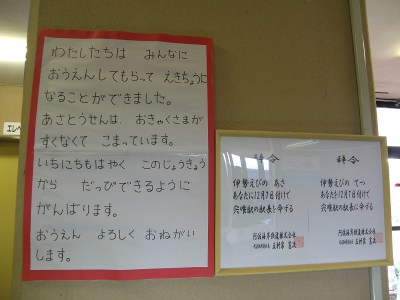 わたしたちは みんなに
おうえんしてもらって えきちょうに
なることができました。
あさとうせんは、おきゃくさまが
すくなくて こまっています。
いちにちもはやく このじょうきょう
から だっぴできるように
がんばります。
おうえん よろしく おねがい
します。
エレベ
辞令
伊勢えびの あさ
あなたに12月7日付けで
宍喰駅の駅長を命ずる
阿佐海岸鉄道株式会社
辞令
伊勢えびの てつ
あなたに12月7日付けで
宍喰駅の駅長に命ずる
阿佐海岸鉄道株式会社